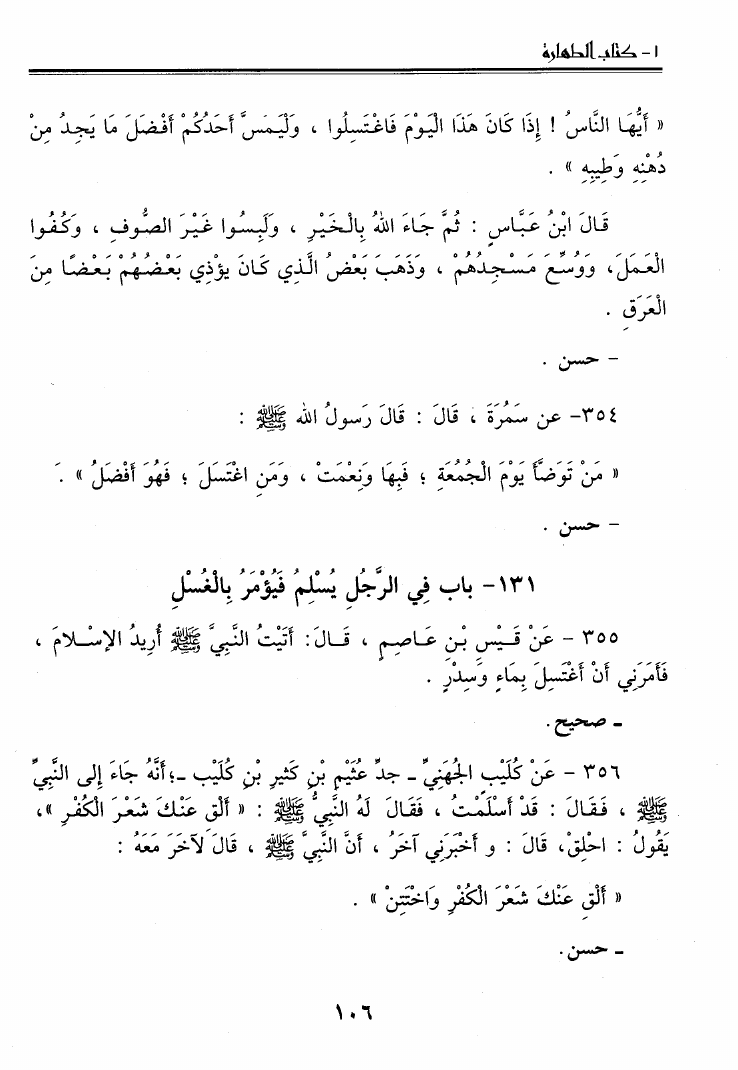 ١ - كتاب الطهارة
« أَيُّهَا النَّاسُ ! إِذَا كَانَ هَذَا الْيَوْمَ فَاغْتَسِلُوا ، وَلْيَمَسَّ أَحَدُكُمْ أَفْضَلَ مَا يَجِدُ مِنْ
دُهْنِهِ وَطِيبِهِ » .
قَالَ ابْنُ عَبَّاسٍ : ثُمَّ جَاءَ اللهُ بِالْخَيْرِ ، وَلَبِسُوا غَيْرَ الصُّوفِ ، وَكُفُوا
الْعَمَلَ، وَوُسِّعَ مَسْجِدُهُمْ ، وَذَهَبَ بَعْضُ الَّذِي كَانَ يؤْذِي بَعْضُهُمْ بَعْضًا مِنَ
الْعَرَقِ .
- حسن .
٣٥٤- عن سَمُرَةَ ، قَالَ : قَالَ رَسولُ الله ﷺ :
« مَنْ تَوَضَّأَ يَوْمَ الْجُمُعَةِ ؛ فَبِهَا وَنِعْمَتْ ، وَمَنِ اغْتَسَلَ ؛ فَهُوَ أَفْضَلُ » .
- حسن .
١٣١- باب فِي الرَّجُلِ يُسْلِمُ فَيُؤْمَرُ بِالْغُسْلِ
٣٥٥ - عَنْ قَيْسِ بْنِ عَاصِمٍ ، قَالَ: أَتَيْتُ النَّبِيَّ ﷺ أُرِيدُ الإِسْلامَ ،
فَأَمَرَنِي أَنْ أَغْتَسِلَ بِمَاءٍ وَسِدْرٍ .
ـ صحيح.
٣٥٦ - عَنْ كُلَيْبٍ الجُهَنِيِّ ـ جدِّ عُثَيْمِ بْنِ كَثيرِ بْنِ كُلَيْب ـ؛ أَنَّهُ جَاءَ إِلى النَّبِيِّ
ﷺ ، فَقَالَ : قَدْ أَسْلَمْتُ ، فَقَالَ لَهُ النَّبِيُّ ﷺ : « أَلْقِ عَنْكَ شَعْرَ الكُفْرِ »،
يَقُولُ : احْلِقْ، قَالَ : و أَخْبَرَنِي آخَرُ ، أَنَّ النَّبِيَّ ﷺ ، قَالَ لآخَرَ مَعَهُ :
« أَلْقِ عَنْكَ شَعْرَ الْكُفْرِ وَاخْتَتِنْ » .
ـ حسن.
١٠٦